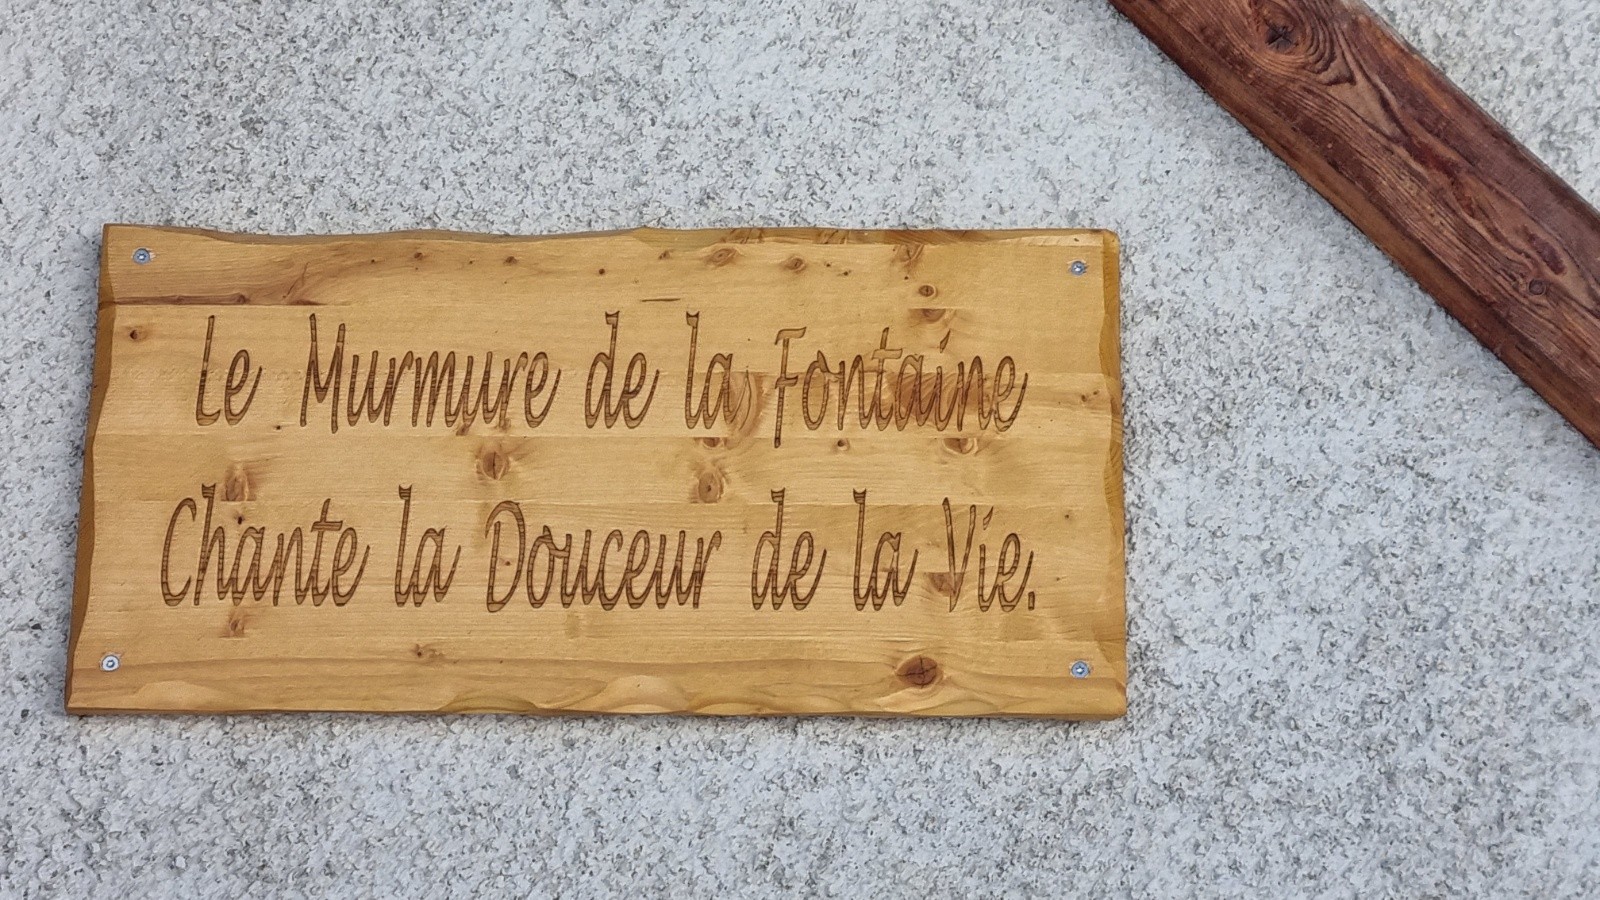 Le Murmure de la Fontaine
Chante la Douceur de la Vie.